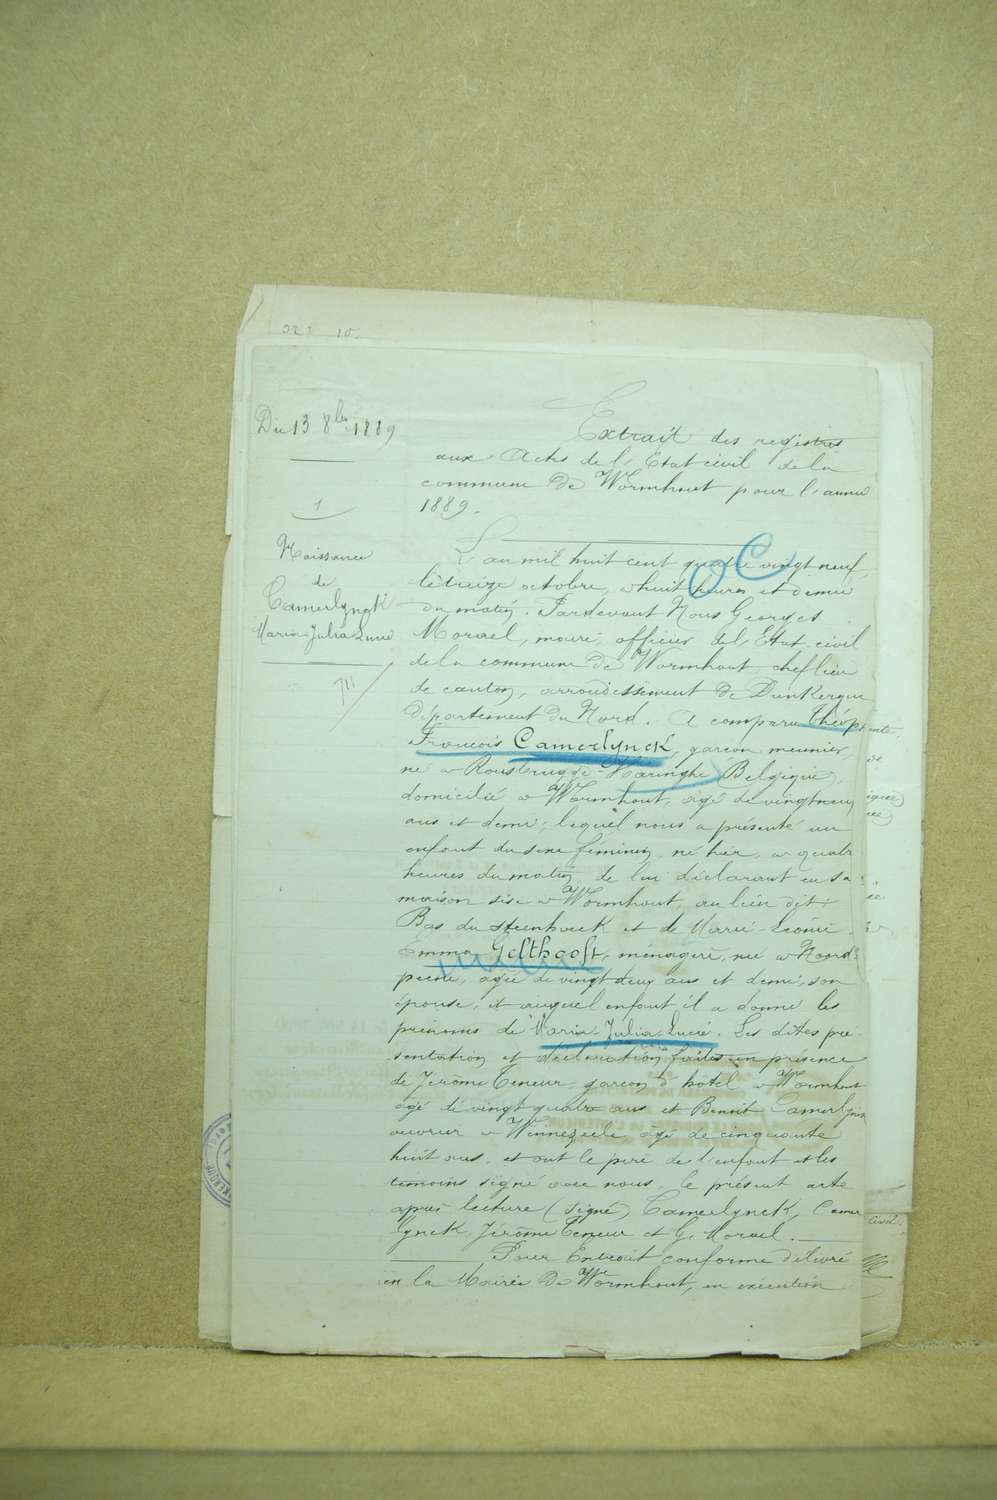 Du 13 8bre 1889
1
Naissance
de
Camerlynck
Maria Julia Lucie
Extrait des registres
aux Actes de l'Etat civil de la
commune de Wormhout pour l'année
1889.
L'an mil huit cent quatre vingt neuf,
le treize octobre, à huit heures et demie
du matin. Pardevant Nous Georges
Morael, maire officier de l'Etat civil
de la commune de Wormhout, chef lieu
de canton, arrondissement de Dunkerque
département du Nord. A comparu Théophile
François Camerlynck, garçon meunier,
né à Rousbrugge-Haringhe Belgique,
domicilié à Wormhout, âgé de vingt neuf
ans et demi; lequel nous a présenté un
enfant du sexe féminin, né hier, à quatre
heures du matin, de lui déclarant en sa
maison sise à Wormhout, au lieu dit:
Bas du Steenhveck et de Marie-Léonie
Emma Gelthooft, ménagère, née à Noord-
peene, âgée de vingt deux ans et demi, son
épouse, et auquel enfant il a donné les
prénoms de Maria-Julia-Lucie. Les dites pré-
sentation et déclaration faites en présence
de Jérôme Teneur garçon d'hotel à Wormhout
âgé de vingt quatre ans et Benoit Camerlynck
ouvrier à Winnezeele, âgé de cinquante
huit ans, et ont le père de l'enfant et les
temoins signé avec nous, le présent acte
après lecture (signé) Camerlynck, Camer
lynck, Jérôme Teneur et G. Morael.
Pour Extrait conforme délivré
en la Mairie de Wormhout, en exécution
civil.